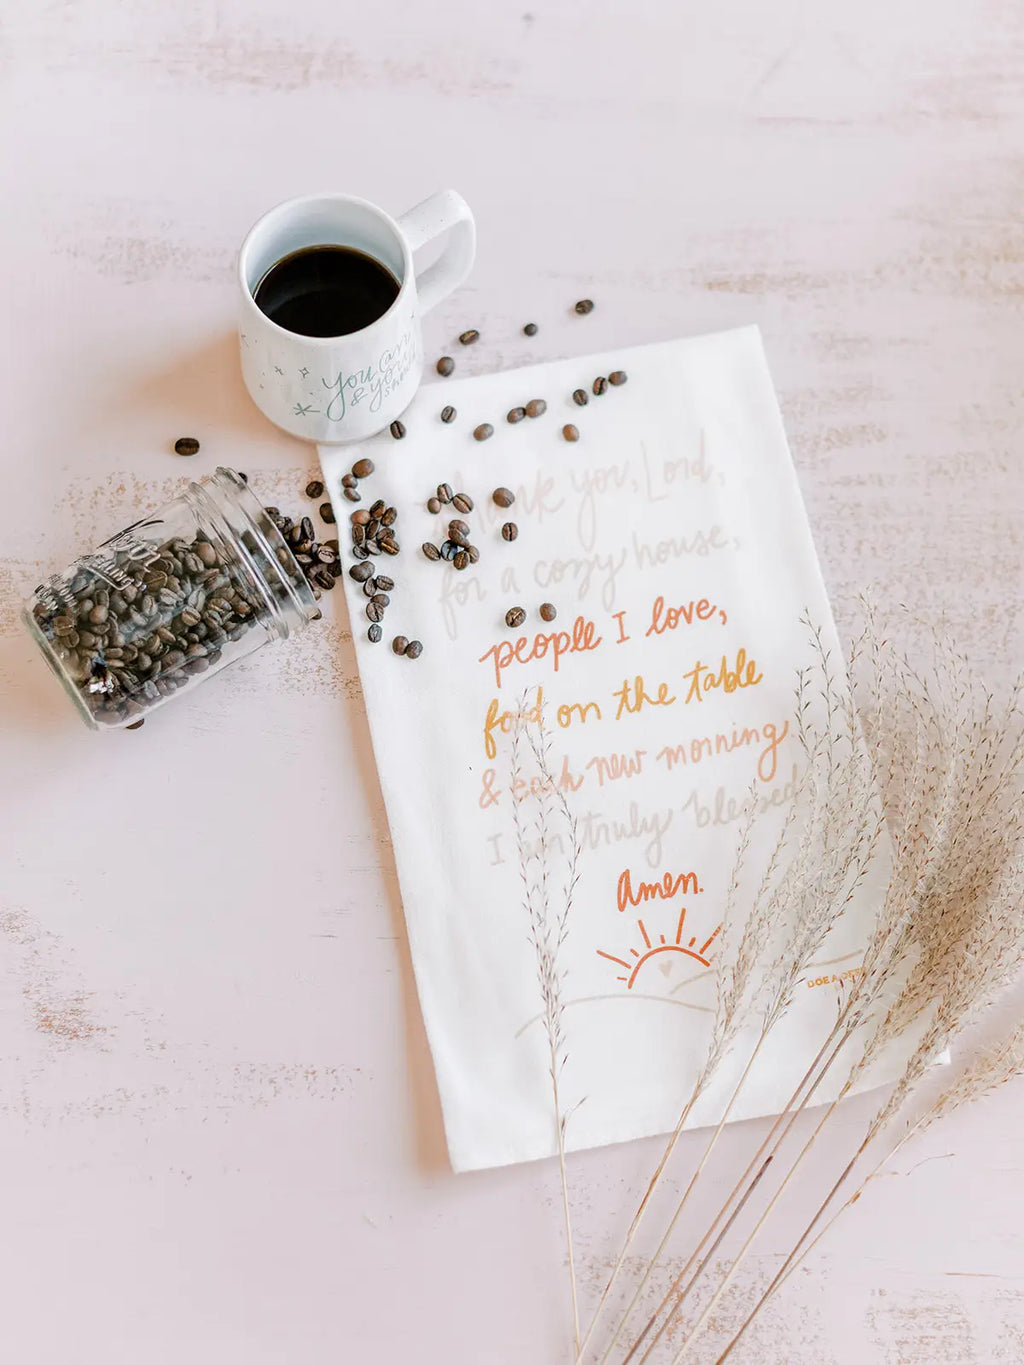 You can
& you
Thank you, Lord,
for a cozy house,
people I love,
food on the table
& each new morning
I am truly blessed
Amen.
DOE A DEER